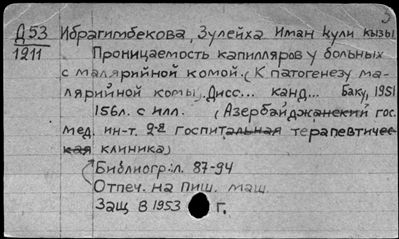 Д53 Ибрагимбекова, Зулейха Иман кули кызы
1211 Проницаемость капилляров у больных
с малярийной комой. (К патогенезу ма-
лярийной комы). Дисс... канд... Баку, 1951
156л. с илл. (Азербайджанский гос.
мед. ин-т. 2-я госпитальная терапевтичес-
кая клиника)
Библиогр: л. 87-94
Отпеч. на пиш. маш.
Защ в 1953 г.